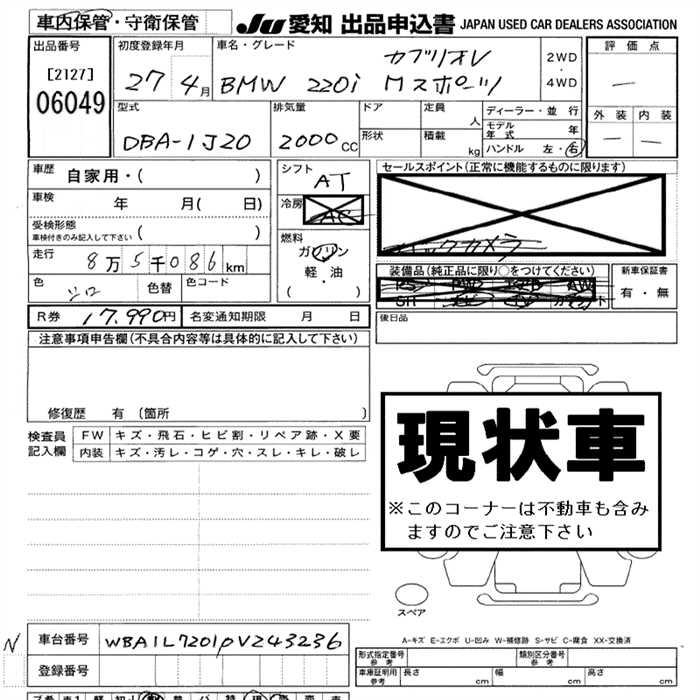 車内保管・守衛保管
JU 愛知 出品申込書 JAPAN USED CAR DEALERS ASSOCIATION
出品番号
[2127]
06049
初度登録年月
27 4月
車名・グレード
カブリオレ
BMW 220i Mスポーツ
2WD
・
4WD
評価点
—
外装 内装
— —
型式
DBA-1J20
排気量
2000cc
ドア
形状
定員 人
積載 kg
ディーラー・並行
モデル年式 年
ハンドル 左・右
車歴 自家用・( )
車検 年 月( 日)
受検形態
車検付きのみ記入して下さい ( )
走行 8万5千086km
色 シロ 色替 色コード
シフト AT
冷房 AC
燃料
ガソリン
軽・油
( )
セールスポイント(正常に機能するものに限ります)
バックカメラ
装備品(純正品に限り○をつけてください)
新車保証書
有・無
後日品
R券 17,990円 名変通知期限 月 日
注意事項申告欄(不具合内容等は具体的に記入して下さい)
修復歴 有 (箇所 )
検査員
記入欄
FW キズ・飛石・ヒビ割・リペア跡・X要
内装 キズ・汚レ・コゲ・穴・スレ・キレ・破レ
現状車
※このコーナーは不動車も含み
ますのでご注意下さい
スペア
A-キズ E-エクボ U-凹み W-補修跡 S-サビ C-腐食 XX-交換済
N
車台番号 WBA1L7201PV243236
登録番号
形式指定番号
参考
類別区分番号
参考
車庫証明用
参考
長さ cm 幅 cm 高さ cm